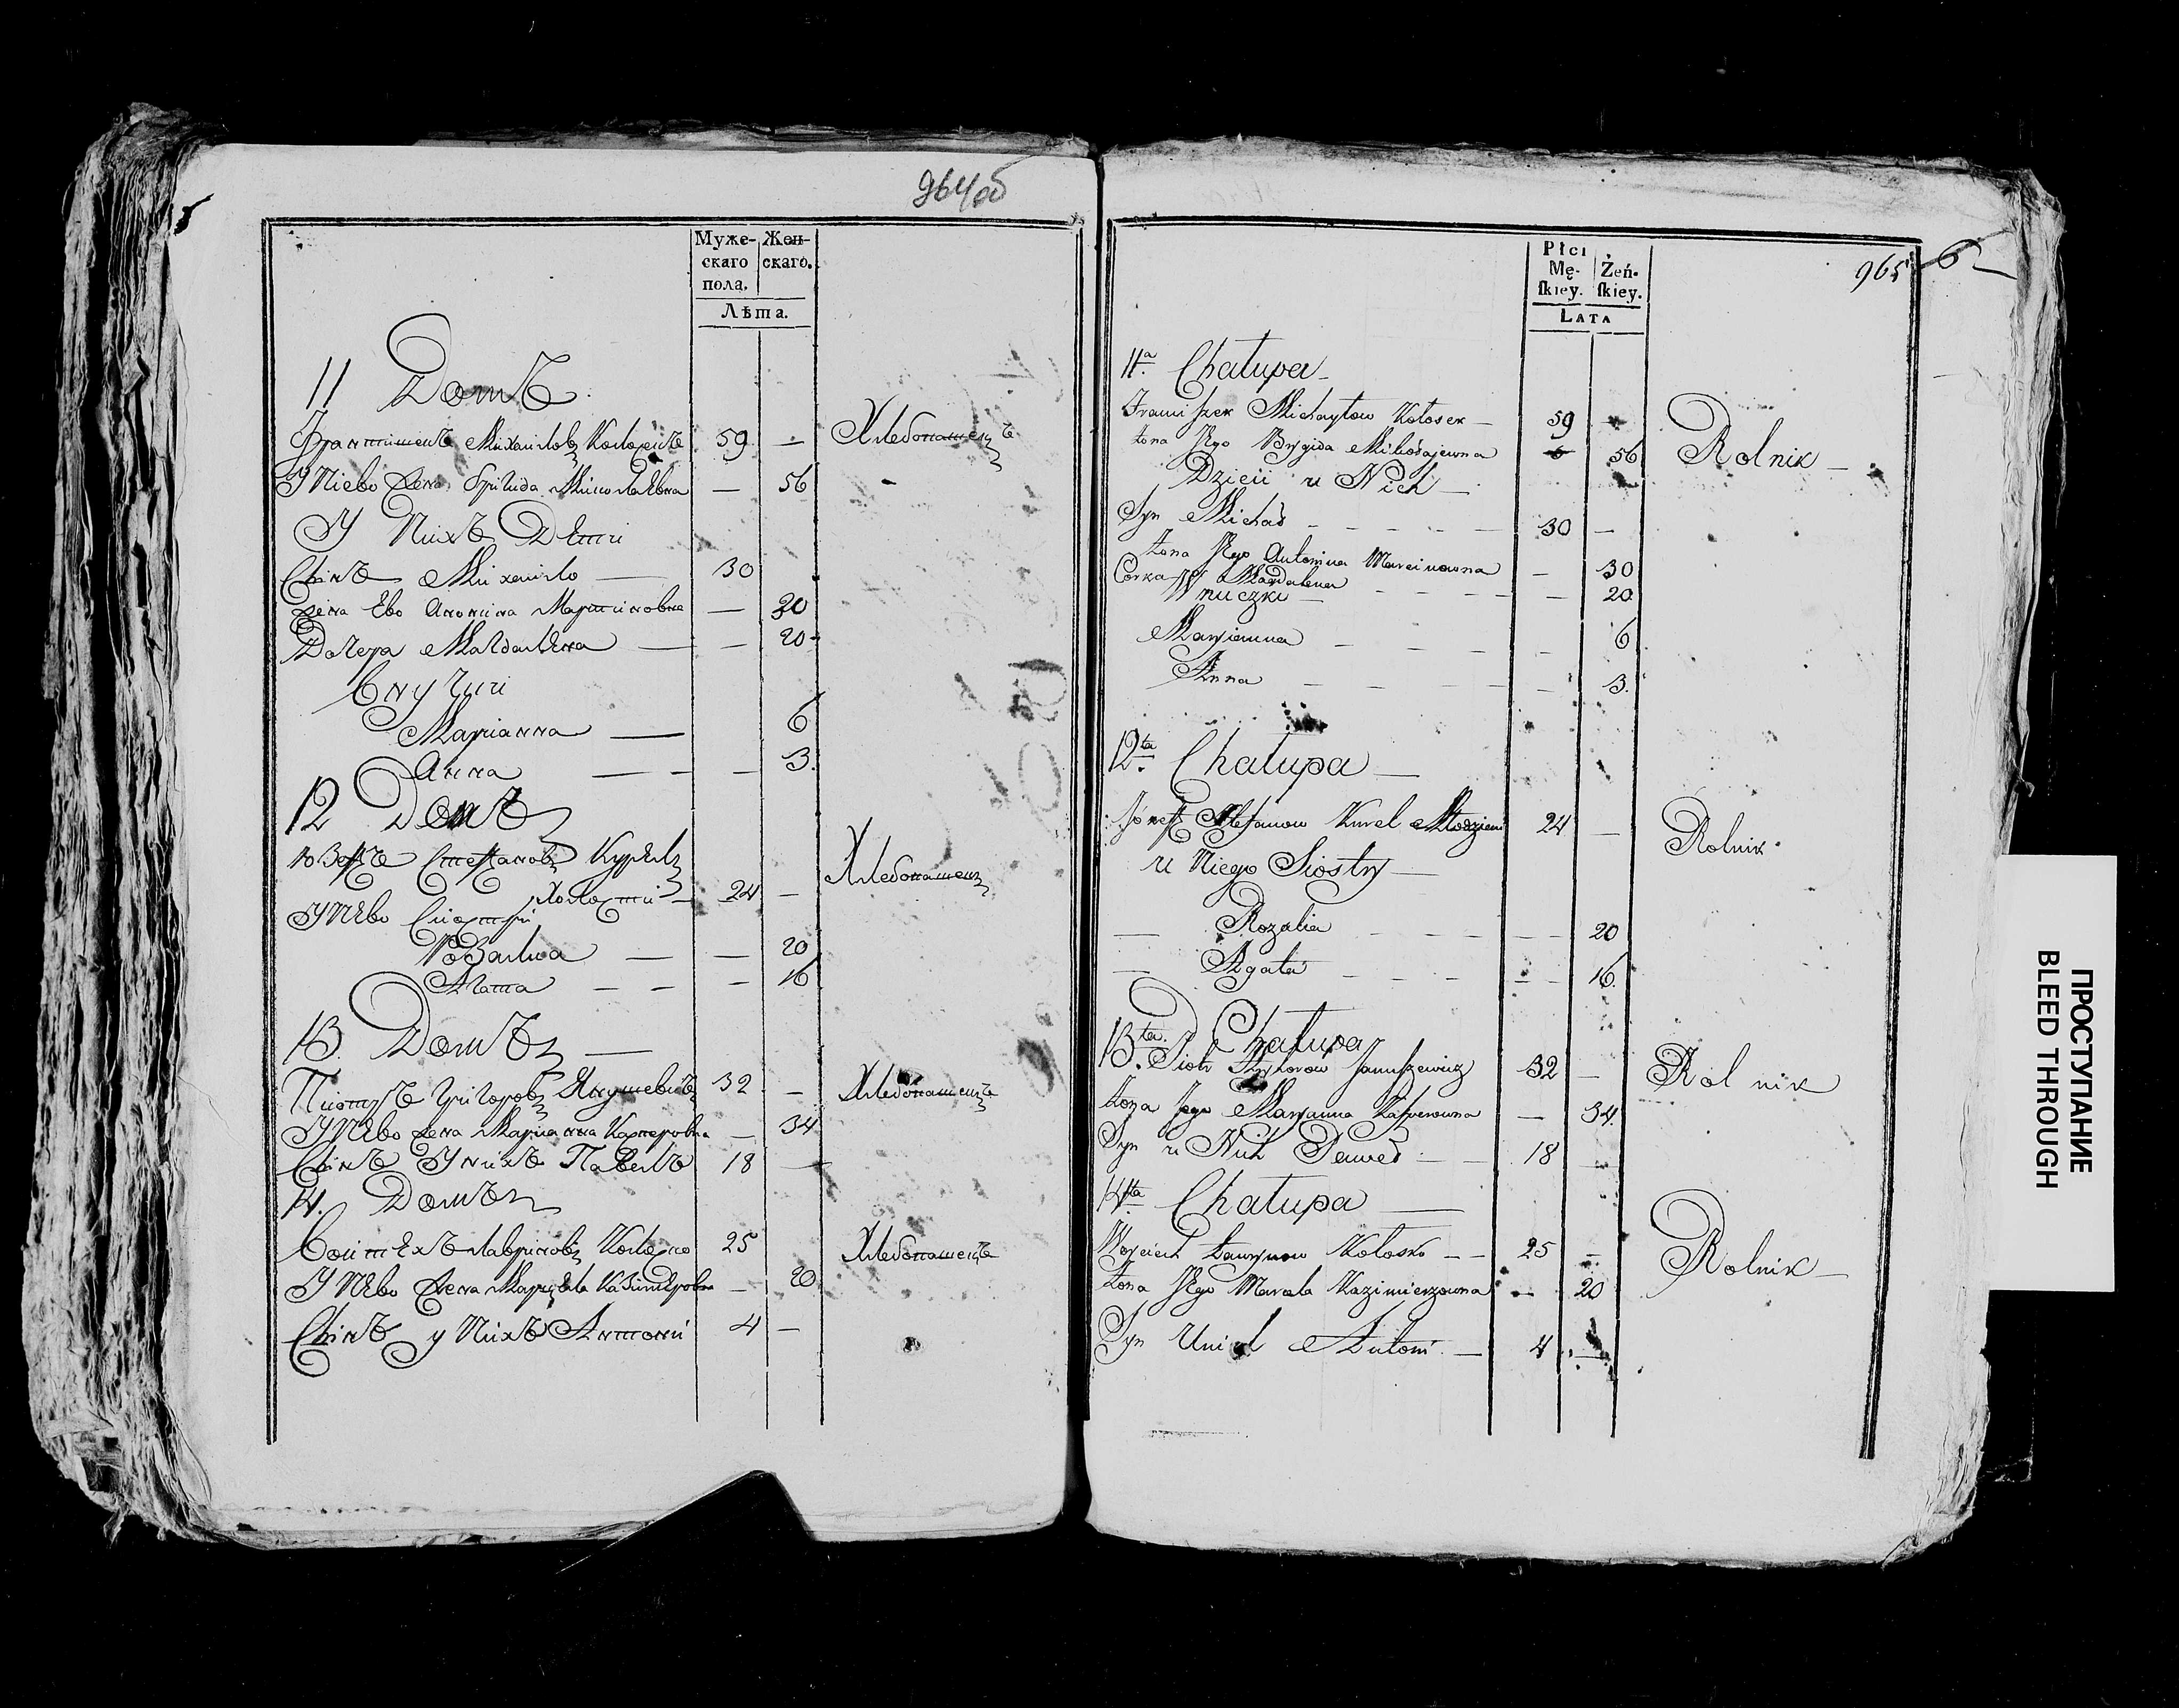 964 об
5
Муже- Жен-
скаго скаго.
пола.
Лѣта.
11 Домъ
Францишекъ Михаиловъ Колосекъ 59 — Хлебопашецъ
У Него жена Бригида Миколаевна — 56
У Нихъ Дети
Сынъ Михаило — 30
жена Ево Анонина Мартиновна — 30
Дочера Магдалена — — 20
Внучки
Марианна — 6
Анна — — — 3.
12 Домъ
Юзефъ Стефановъ Курель Хлебопашецъ
Холостий — 24 —
У Нево Сиостри
Розалиа — — 20
Агата — — — 16
13. Домъ —
Пиотръ Григоровъ Янушевичъ 32 — Хлебопашецъ
У Нево жена Марианна Касперовна — 34
Сынъ У нихъ Павелъ 18 —
14. Домъ
Войтехъ Лавриновъ Колоско 25 Хлебопашецъ
У Нево жена Марцела Казимеровна — 20
Сынъ у Нихъ Антоній 4 —
965 6
Płci
Mę- Żeń-
ſkiey. ſkiey.
LATA
11a. Chałupa
Franciszek Michayłow Kołosek — 59 Rolnik —
żona Jego Brygida Mikołajewna 56
Dzieci u Nich —
Syn Michał — — — — — 30 —
żona Jego Antonina Marcinowna — 30
Corka Magdalena — — — — 20
Wnuczki —
Maryianna — — — — 6
Anna — — — — — 3.
12ta. Chałupa —
Józef Stefanow Kurel Młodzieni 24 — Rolnik
u Niego Siostry —
— Rozalia — — — — — 20
— Agata — — — — — 16.
13ta. Chałupa
Piotr Januszewicz 32 — Rolnik
żona Jego Maryanna Kasperowna — 34.
Syn u Nich Paweł — — 18 —
14ta Chałupa —
Woyciech Ławrynow Kołosko — — 25 — Rolnik —
żona Jego Marcela Kazimierzowna — 20
Syn Antoni — 4 —
ПРОСТУПАНИЕ
BLEED THROUGH